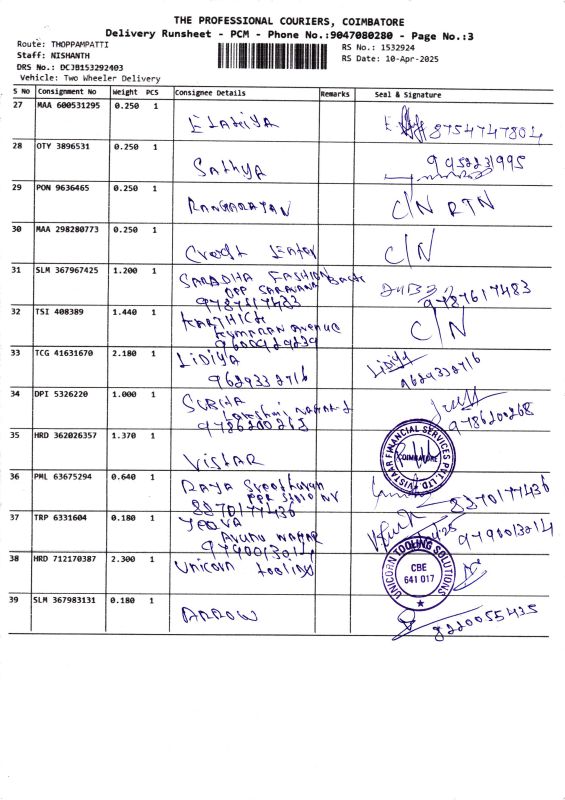 THE PROFESSIONAL COURIERS, COIMBATORE
Delivery Runsheet - PCM - Phone No.:9047080280 - Page No.:3
Route: THOPPAMPATTI
RS No.: 1532924
Staff: NISHANTH
RS Date: 10-Apr-2025
DRS No.: DCJB153292403
Vehicle: Two Wheeler Delivery
S No Consignment No Weight PCS Consignee Details Remarks Seal & Signature
27 MAA 600531295 0.250 1
8754747804
28 OTY 3896531 0.250 1 Sathya
9952231995
29 PON 9636465 0.250 1 RANGARAJAN C/N RTN
30 MAA 298280773 0.250 1 C/N
Credit
31 SLM 367967425 1.200 1 SARADHA FASHION Back
OPP SARAVANA
9787617483
32 TSI 408389 1.440 1 KARTHICK C/N
KUMARAN Avenue
33 TCG 41631670 2.180 1 LIDIYA Lidiya
9629332716 9629332716
34 DPI 5326220 1.000 1 SUBHA
Lakshmi NAGAR
9786200268 9786200268
35 HRD 362026357 1.370 1 VISTAR
VISTAAR FINANCIAL SERVICES PVT LTD
COIMBATORE
36 PML 63675294 0.640 1 DAYA
8870177436 8870177436
37 TRP 6331604 0.180 1 JEEVA
NAGAR
9790013014 9790013014
38 HRD 712170387 2.300 1 Unicorn tooling
UNICORN TOOLING SOLUTIONS
CBE
641 017
39 SLM 367983131 0.180 1 ARROW
8220055435